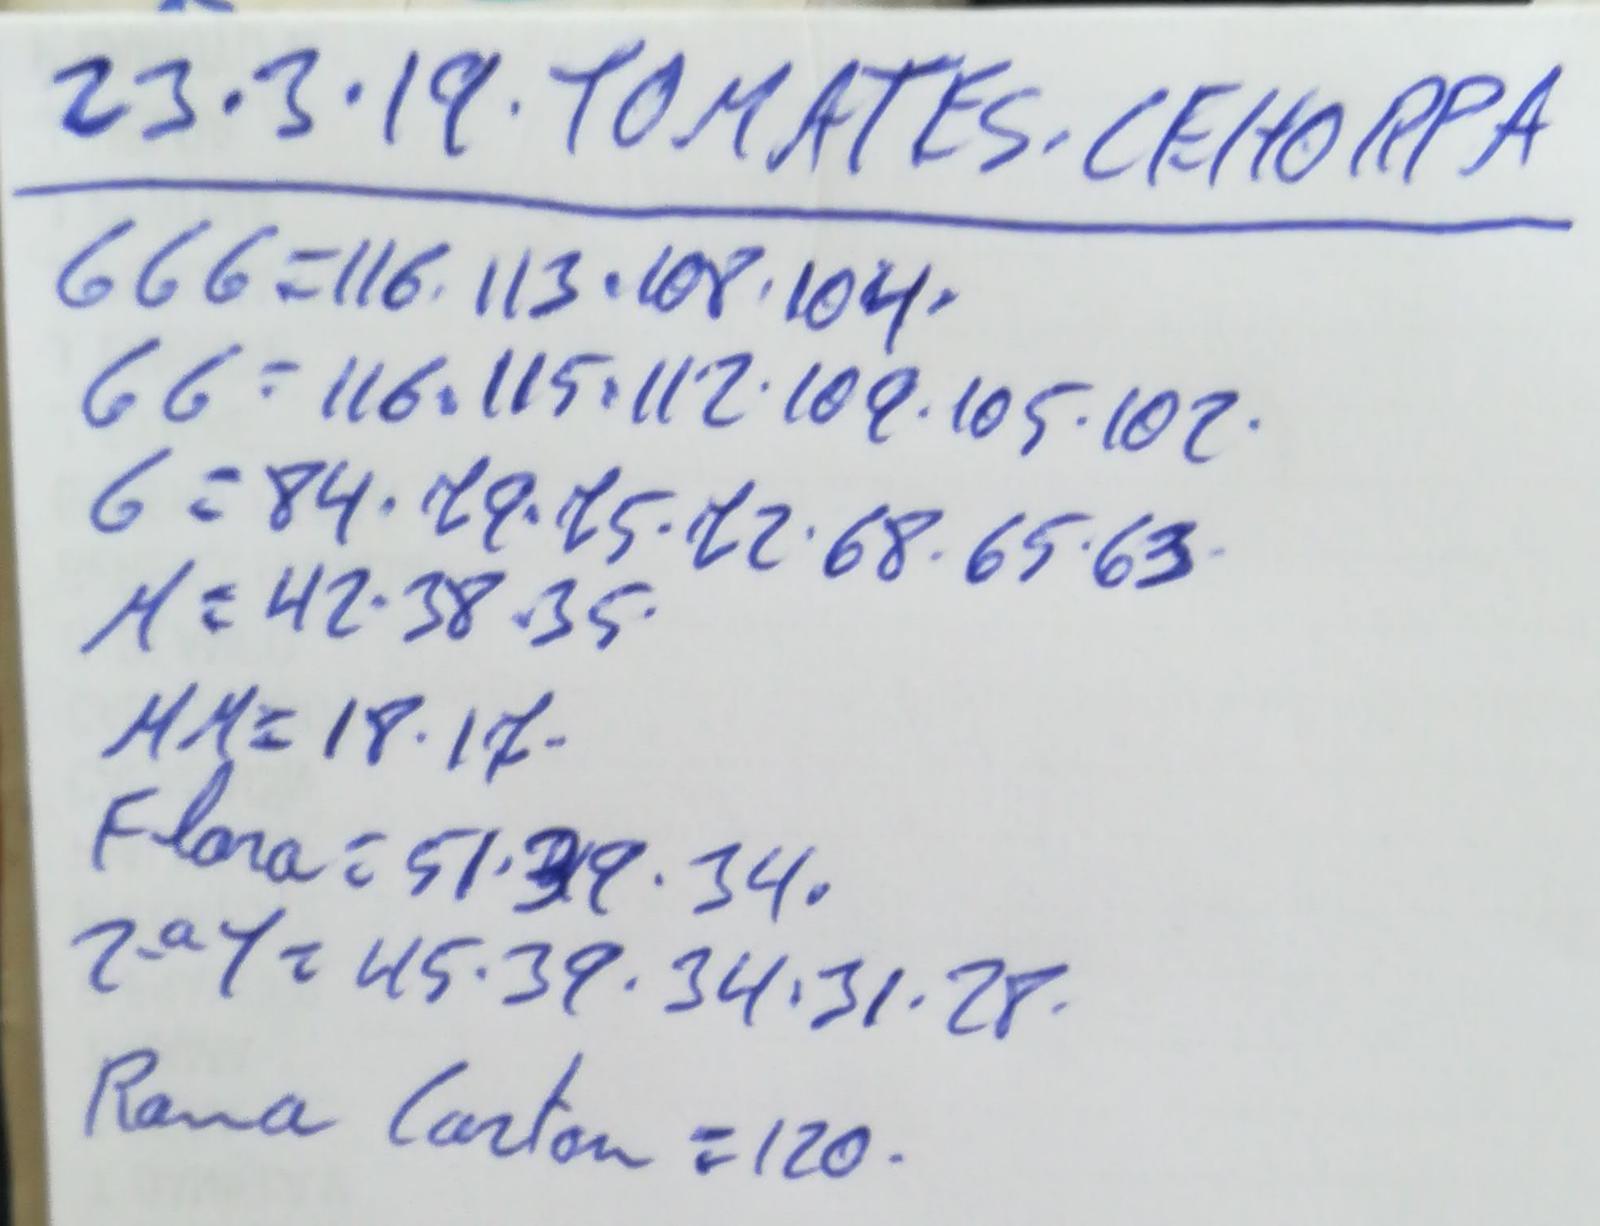 23.3.19. TOMATES. CEHORPA
GGG=116.113.108.104.
GG=116.115.112.109.105.102.
G=84.79.75.72.68.65.63.
M=42.38.35.
MM=18.17-
Flora=51.39.34.
2ªY=45.39.34.31.28.
Rama Carton=120.